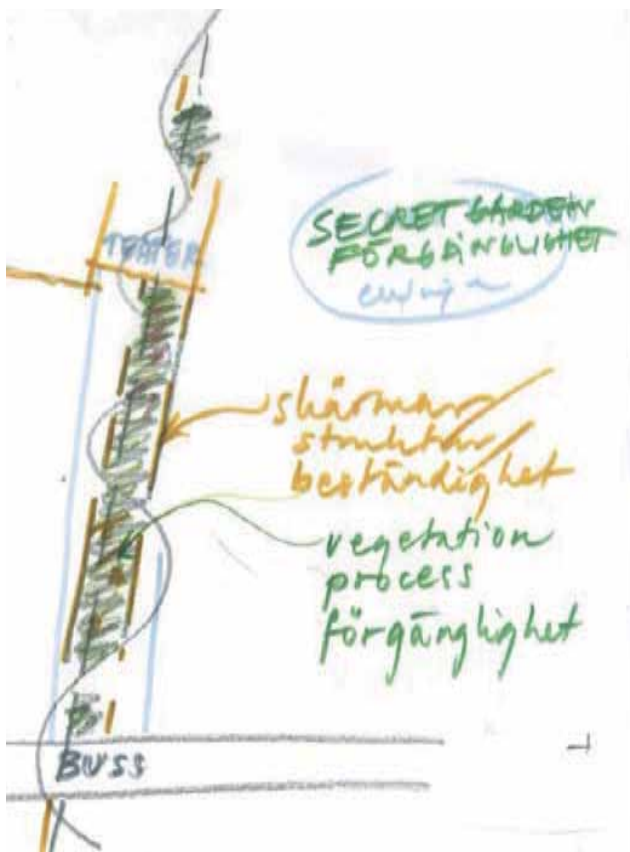 SECRET GARDEN
FÖRGÄNGLIGHET
TEATER
skärmar/
struktur/
beständighet
vegetation
process
förgänglighet
BUSS